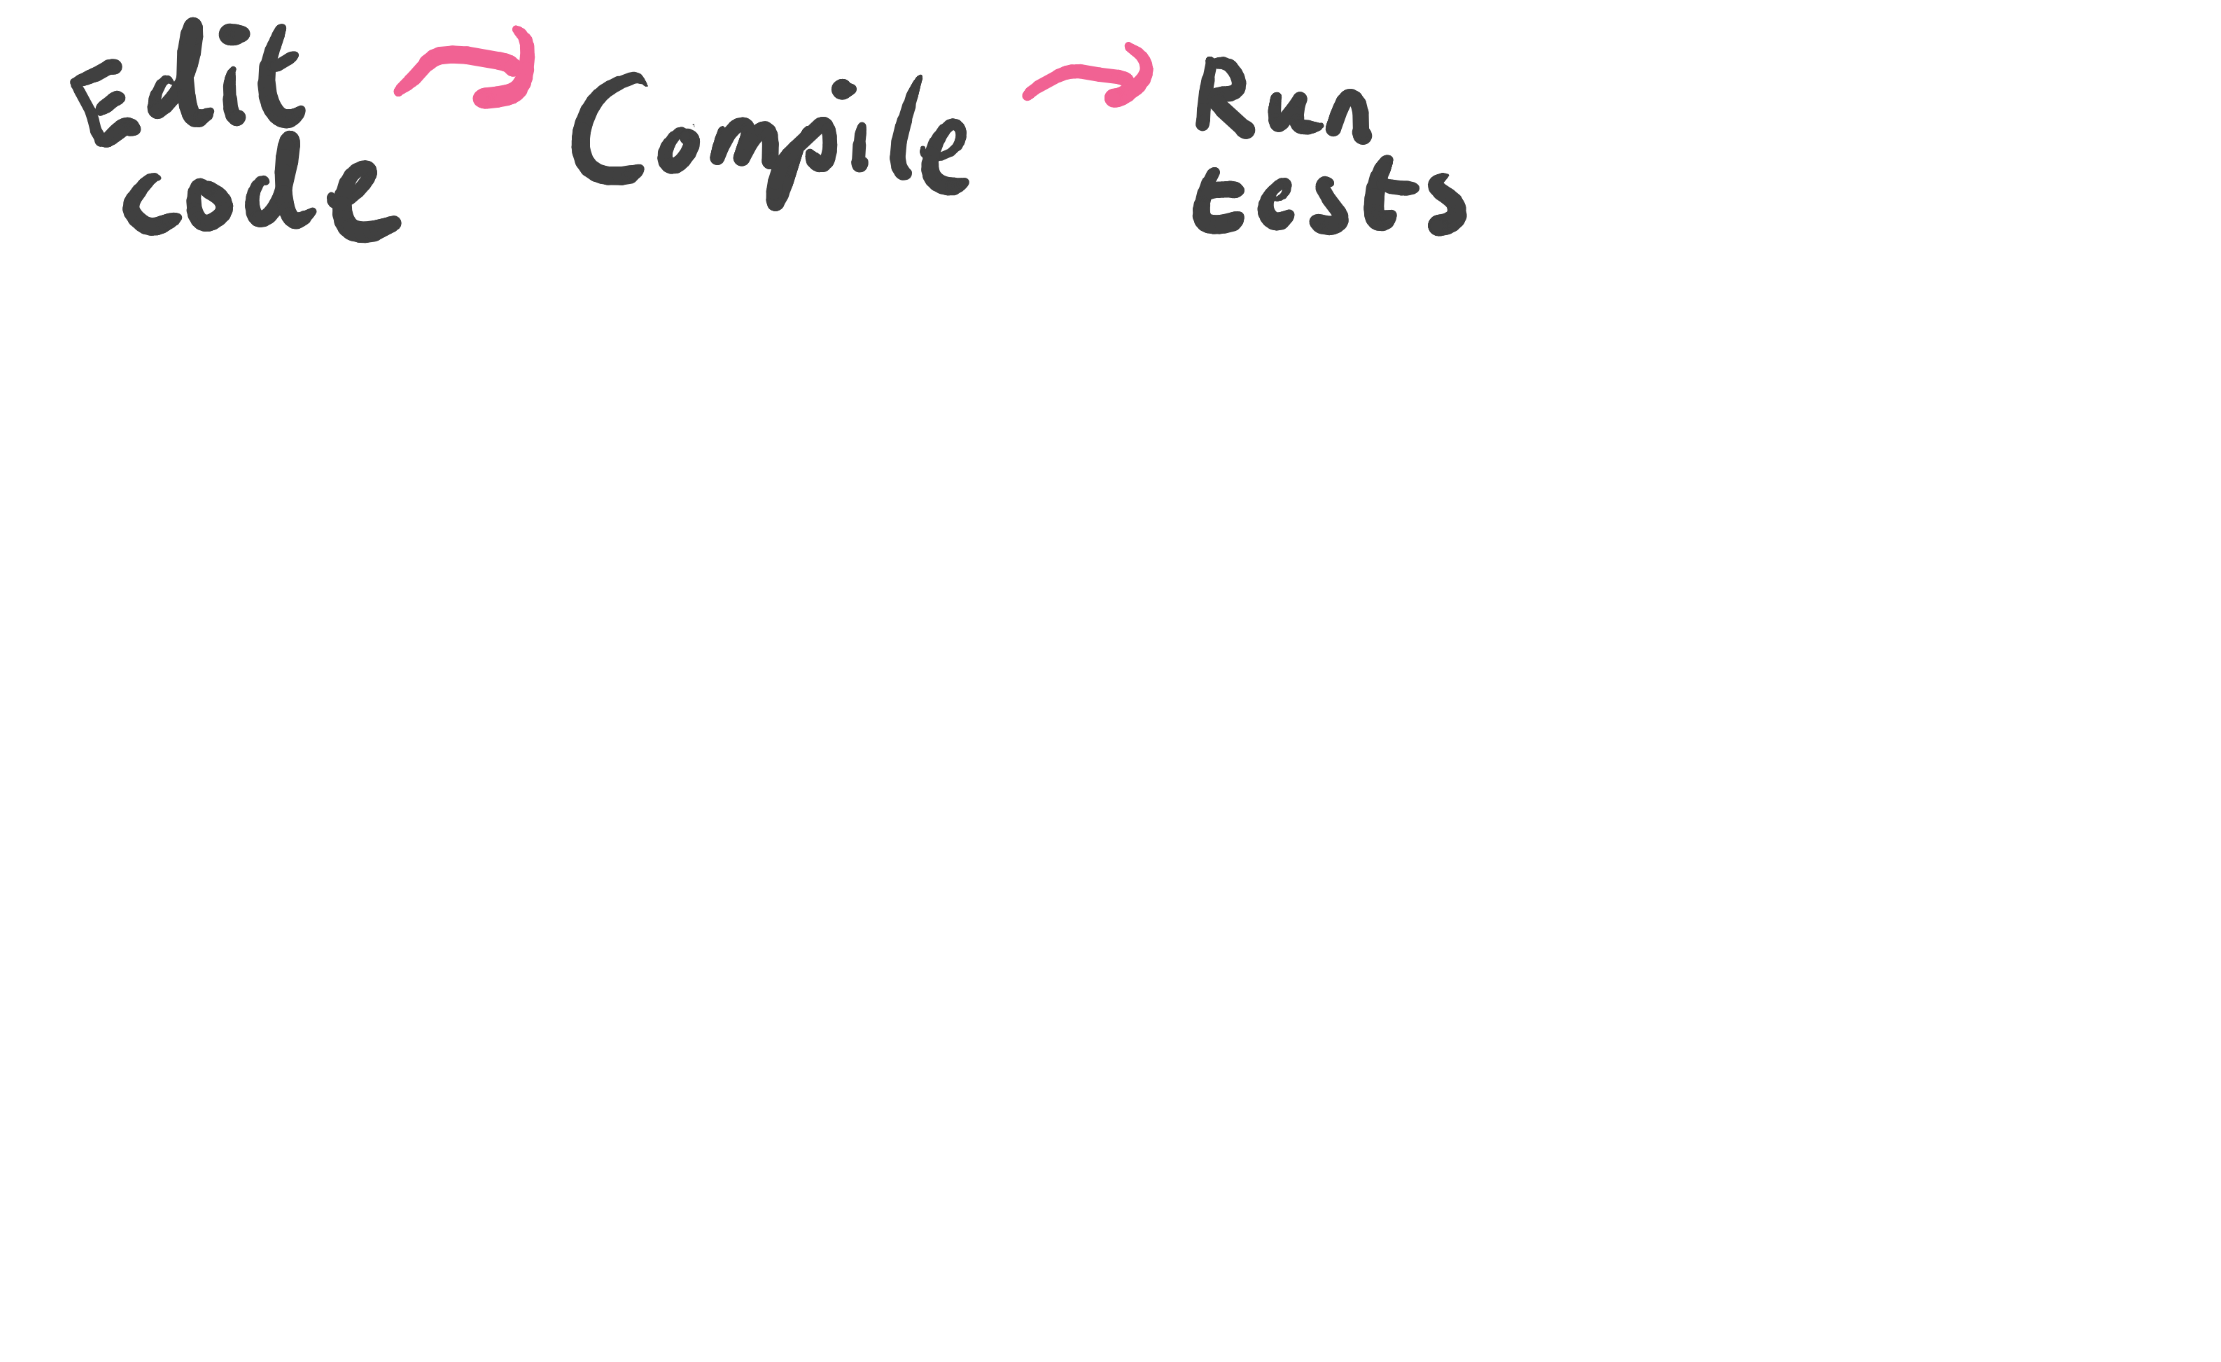 Edit
code
Compile
Run
tests